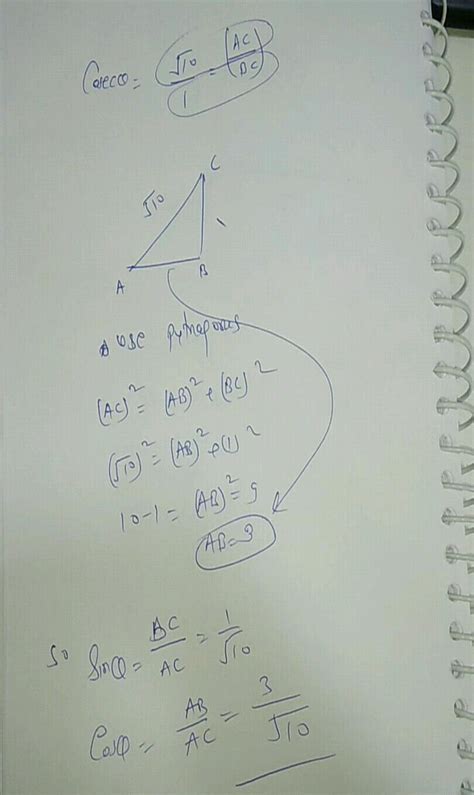 Cosecθ = √10/1 = (AC)/(BC)
C
√10
1
A
B
use pythagoras
(AC)² = (AB)² + (BC)²
(√10)² = (AB)² + (1)²
10-1 = (AB)² = 9
AB=3
So Sinθ = BC/AC = 1/√10
Cosθ = AB/AC = 3/√10